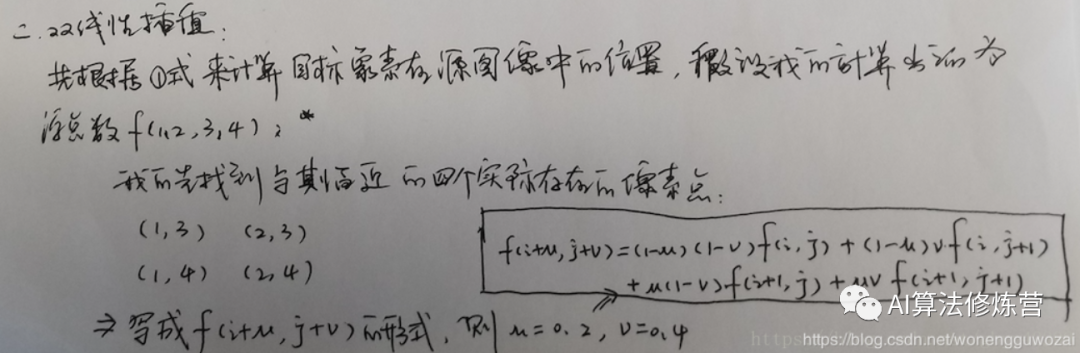 二.双线性插值:
先根据①式来计算目标象素在源图像中的位置，假设我们计算出的为
浮点数f(1.2,3.4),
我们先找到与其临近的四个实际存在的像素点:
(1,3) (2,3)
(1,4) (2,4)
f(i+u,j+v)=(1-u)(1-v)f(i,j)+(1-u)v·f(i,j+1)
+u(1-v)f(i+1,j)+uvf(i+1,j+1)
⇒写成f(i+u,j+v)的形式，则u=0.2,v=0.4
AI算法修炼营
https://blog.csdn.net/wonengguwozai